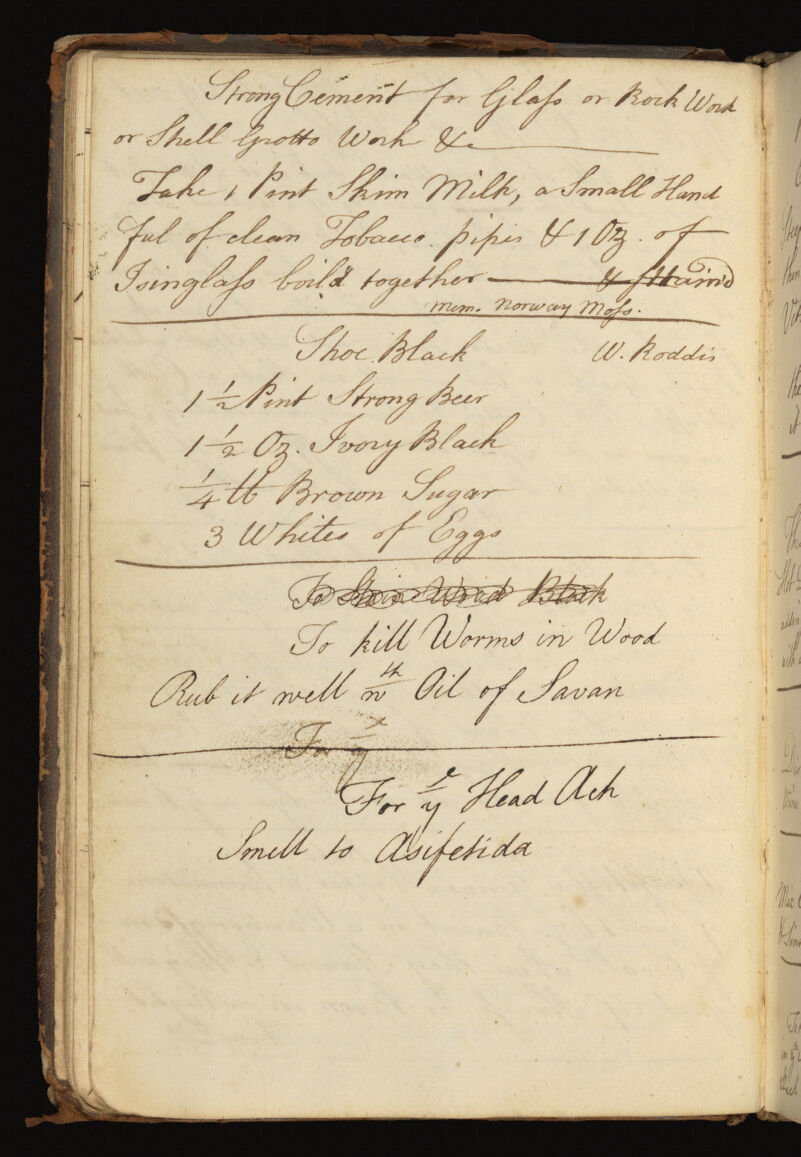 Strong Cement for Glass or Rock Work
or Shell Grotto Work &c
Take 1 Pint Skim Milk, a Small Hand
ful of clean Tobacco pipes & 1 Oz. of
Isinglass boil'd together & strain'd
Mem. Norway Moss.
Shoe Black W. Roddis
1 1/2 Pint Strong Beer
1 1/2 Oz. Ivory Black
1/4 lb Brown Sugar
3 Whites of Eggs
To Stain Wood Black
To kill Worms in Wood
Rub it well wth Oil of Savan
For ye
For ye Head Ach
Smell to Asifetida